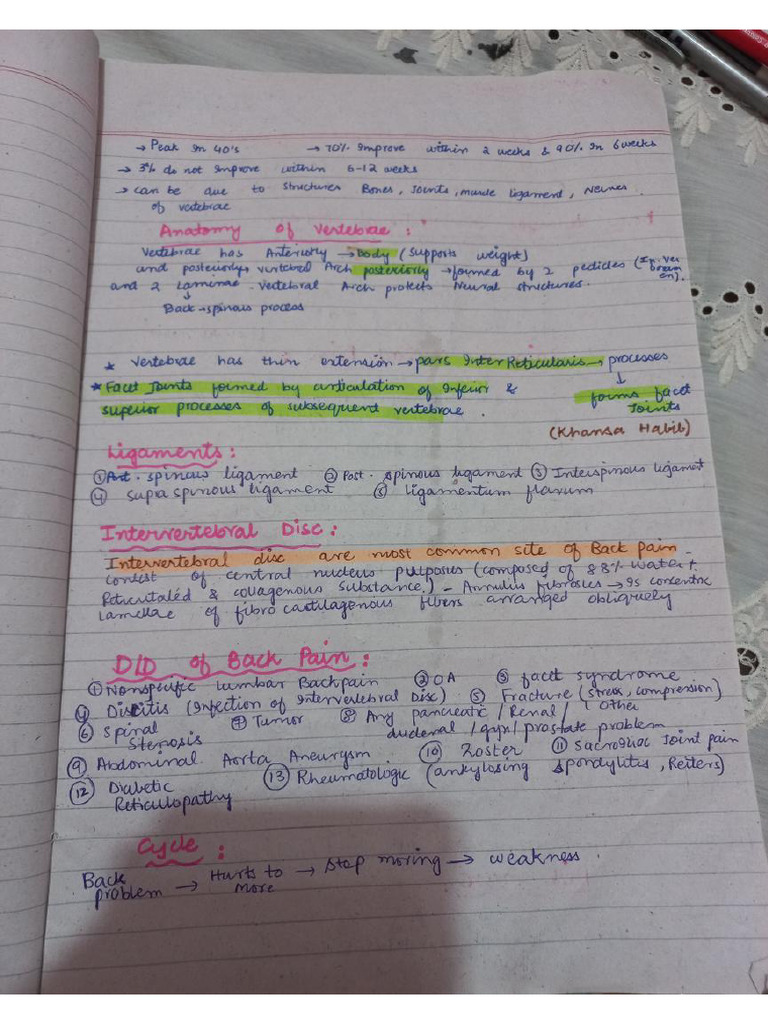 → Peak in 40's → 70% improve within 2 weeks & 90% in 6 weeks
→ 3% do not improve within 6-12 weeks
→ can be due to structures Bones, Joints, muscle ligament, Nerves
of vertebrae
Anatomy of Vertebrae:
Vertebrae has Anteriorly → body (supports weight)
and posteriorly, vertebral Arch posteriorly → formed by 2 pedicles
and 2 Laminae. Vertebral Arch protects Neural structures.
↓
Back → spinous process
* Vertebrae has thin extension → pars InterReticularis → processes
↓
* Facet Joints formed by articulation of Inferior & forms facet
superior processes of subsequent vertebrae. Joints
(Khansa Habib)
Ligaments:
① Ant. spinous ligament ② Post. spinous ligament ③ Interspinous ligament
④ supra spinous ligament ⑤ ligamentum flavum
Intervertebral Disc:
Intervertebral disc are most common site of Back pain.
consist of central nucleus pulposus (composed of 88% water +
Reticutaled & collagenous substance.) - Annulus fibrosus → is concentric
lamellae of fibrocartilagenous fibers arranged obliquely
D/D of Back Pain:
① Nonspecific Lumbar Backpain ② OA ③ facet syndrome
④ Discitis (Infection of Intervertebral Disc) ⑤ Fracture (stress, compression)
⑥ Spinal Stenosis ⑦ Tumor ⑧ Any pancreatic / Renal / Other
duodenal / gyn / prostate problem
⑨ Abdominal Aorta Aneurysm. ⑩ Zoster ⑪ Sacroiliac Joint pain
⑫ Diabetic ⑬ Rheumatologic (ankylosing spondylitis, Reiters)
Reticulopathy
Cycle:
Back problem → Hurts to more → Stop moving → weakness.